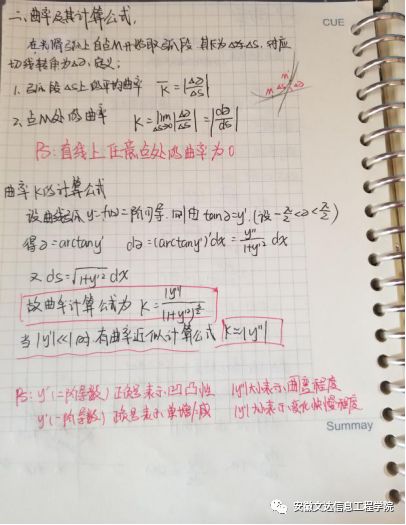 二、曲率及其计算公式.
CUE
在光滑弧上自点M开始取弧段,其长为Δs,对应
切线转角为Δα,定义:
1. 弧段Δs上的平均曲率 K̄=|Δα/Δs|
M' Δs Δα
M
2. 点M处的曲率 K=lim Δs→0 |Δα/Δs|=|dα/ds|
Ps:直线上任意点处的曲率为0
曲率K的计算公式
设曲线弧y=f(x)二阶可导,则由tanα=y'(设-π/2<α<π/2)
得α=arctany' dα=(arctany')'dx=y''/(1+y'²) dx
又ds=√(1+y'²) dx
故曲率计算公式为 K=|y''|/(1+y'²)^(3/2)
当|y'|<<1时,有曲率近似计算公式 K≈|y''|
Ps: y''(二阶导数)正负号表示凹凸性 |y''|大小表示弯曲程度
y'(一阶导数)正负号表示单增/减 |y'|大小表示变化快慢程度
Summay
安徽文达信息工程学院